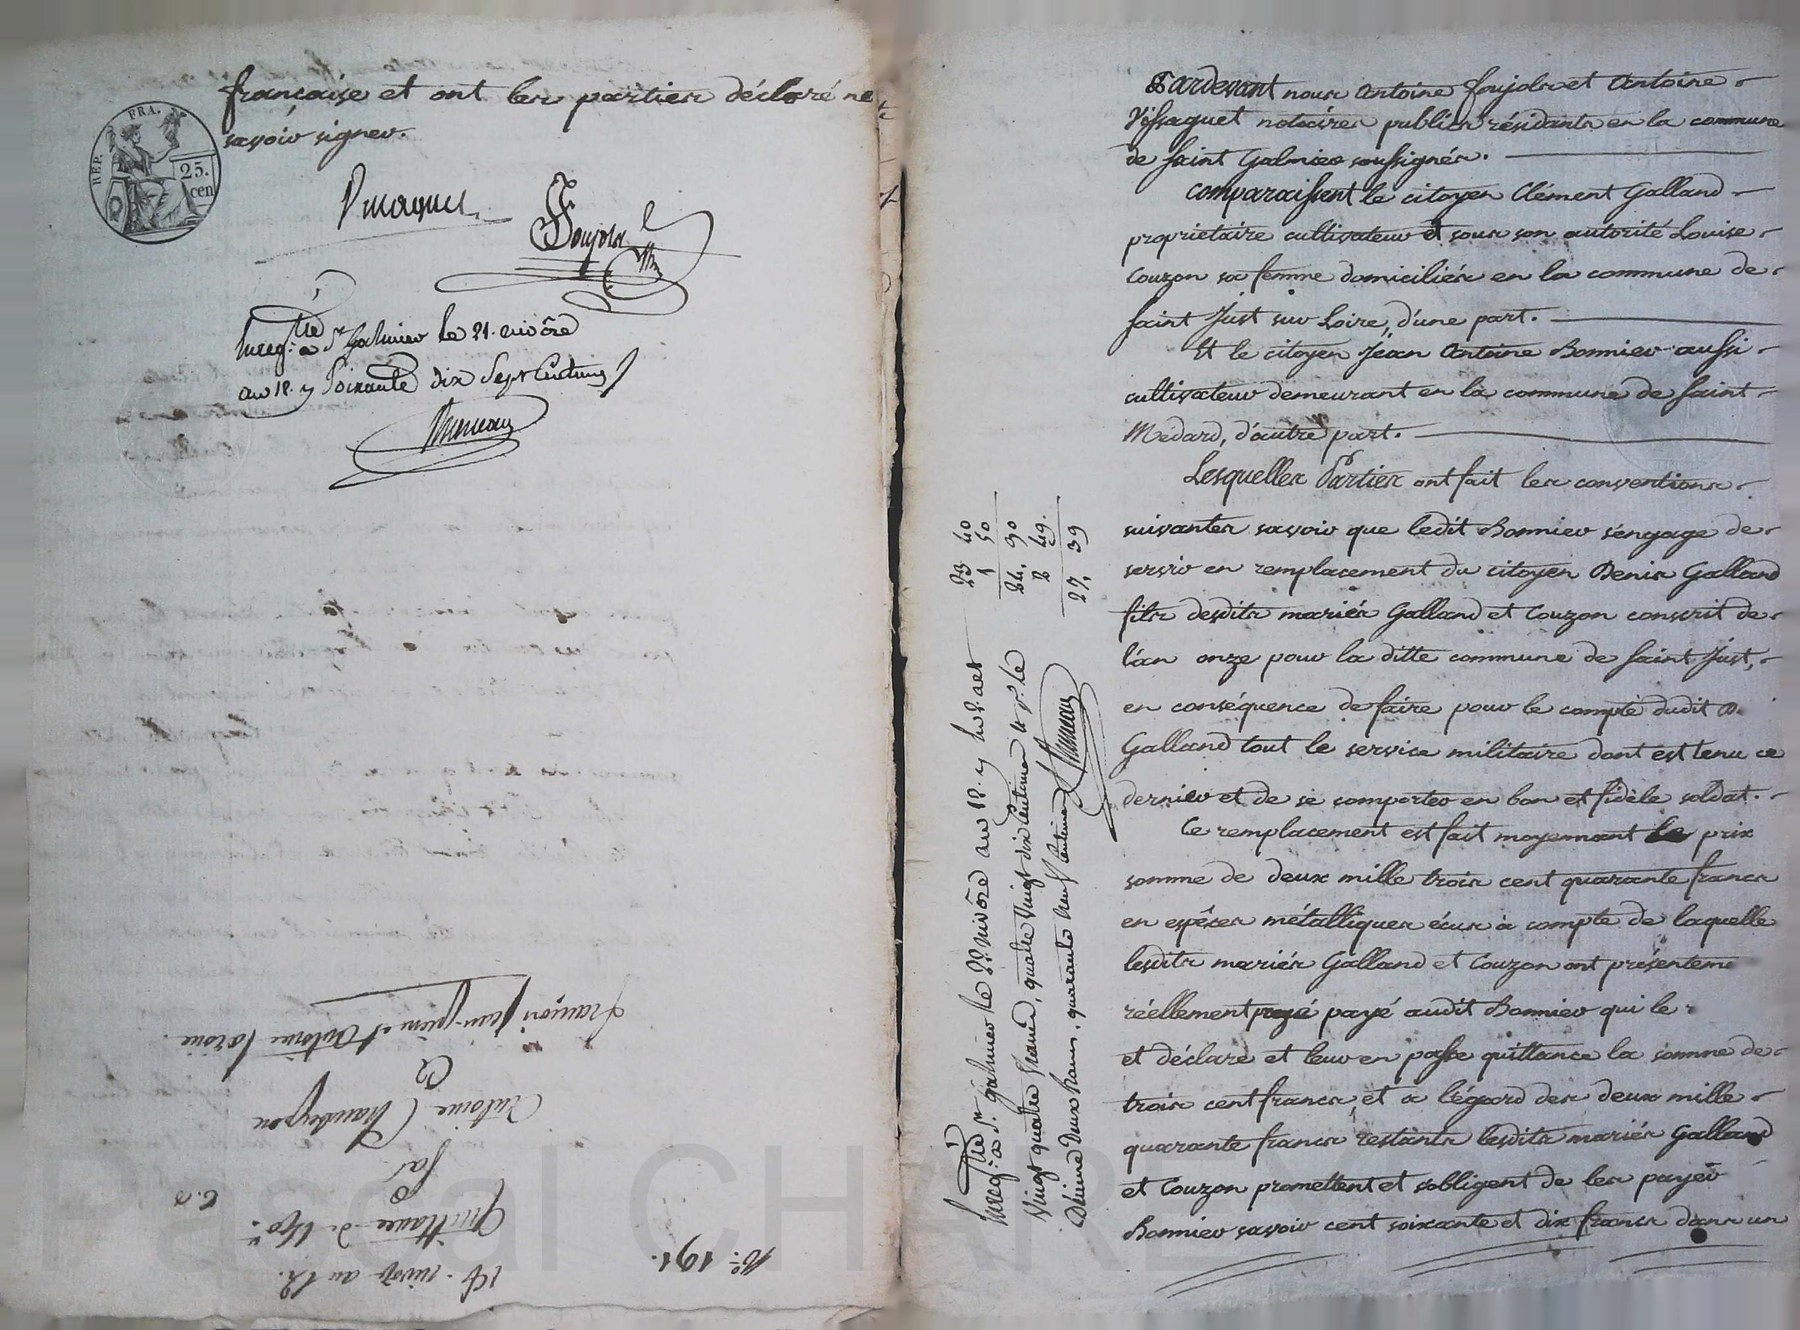 française et ont les parties déclaré ne
savoir signer.
REP. FRA.
25.
cen
Foujols
Enreg.tré a St Galmier le 21. nivôse
an 12. y Soixante dix Sept Centimes
françois jean pierre et Antoine
Antoine
a
fai
Quittance de
C. a
14. nivose an 12.
No. 191.
Pardevant nous Antoine foujols et Antoine
Vissaguet notaires publics résidants en la commune
de saint Galmier soussignés.
comparaissent le citoyen Clément Galland
propriétaire cultivateur et sous son autorité Louise
Couzon sa femme domiciliés en la commune de
saint Just sur Loire, d'une part.
Et le citoyen Jean Antoine Bonnier aussi
cultivateur demeurant en la commune de saint
Médard, d'autre part.
Lesquelles Parties ont fait les conventions
suivantes savoir que ledit Bonnier s'engage de
servir en remplacement du citoyen Denis Galland
fils desdits mariés Galland et Couzon conscrit de
l'an onze pour la ditte commune de saint Just,
en conséquence de faire pour le compte dudit D.
Galland tout le service militaire dont est tenu ce
dernier et de se comporter en bon et fidèle soldat.
Ce remplacement est fait moyennant le prix
somme de deux mille trois cent quarante francs
en espèces métalliques écus à compte de laquelle
lesdits mariés Galland et Couzon ont présenteme
réellement payé payé audit Bonnier qui le
et déclare et leur en passe quittance la somme de
trois cent francs et a l'égard des deux mille
quarante francs restants lesdits mariés Galland
et Couzon promettent et s'obligent de les payer
Bonnier savoir cent soixante et dix francs dans un
Enreg.tré a St. galmier le 22 nivôse an 12. y
Vingt quatre francs, quatre Vingt dix Centimes et pr. le
Dixième deux francs, quarante neuf Centimes
23 40
1 50
24. 90
2 49.
27. 39
Pascal CHARE